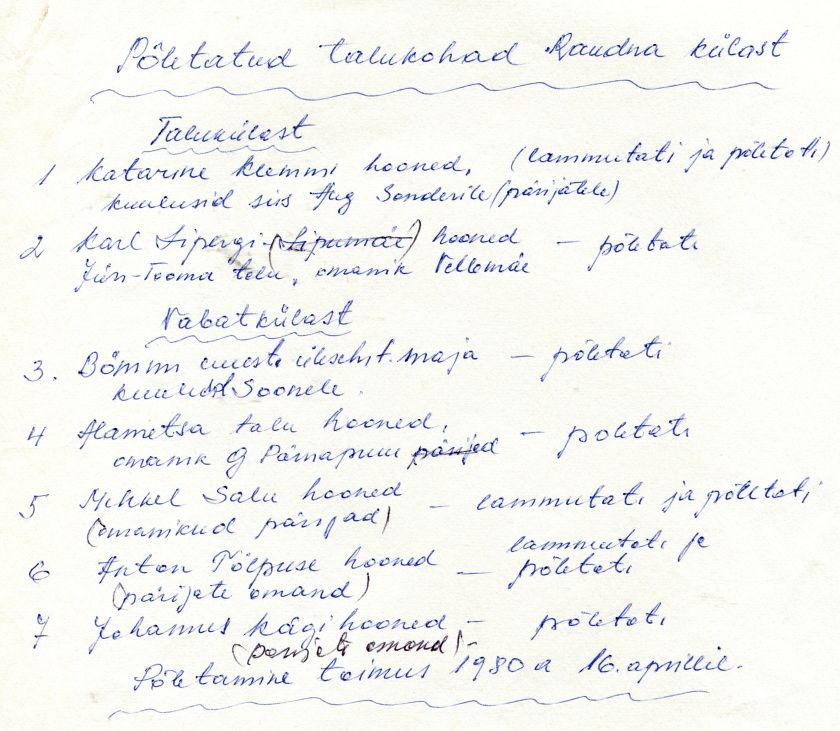 Põletatud talukohad Raudna külast
Talukülast
1 Katarine Klemmi hooned, (lammutati ja põletati)
kuulusid siis Aug Sonderile (pärijatele)
2 Karl Lipergi (Lipumäe) hooned — põletati
Jüri-Tooma talu, omanik Vellomäe
Vabatkülast
3. Bömmi maja — põletati
Soonele.
4 Alametsa talu hooned, — poletati
omanik O Pärnapuu pärijad
5 Mihkel Salu hooned — lammutati ja põletati
(omanikud pärijad)
6 Anton Tõlpuse hooned — lammutati ja
(pärijate omand) põletati
7 Johannes Kägi hooned — põletati
(pärijate omand) -
Põletamine toimus 1980 a 16. aprillil.